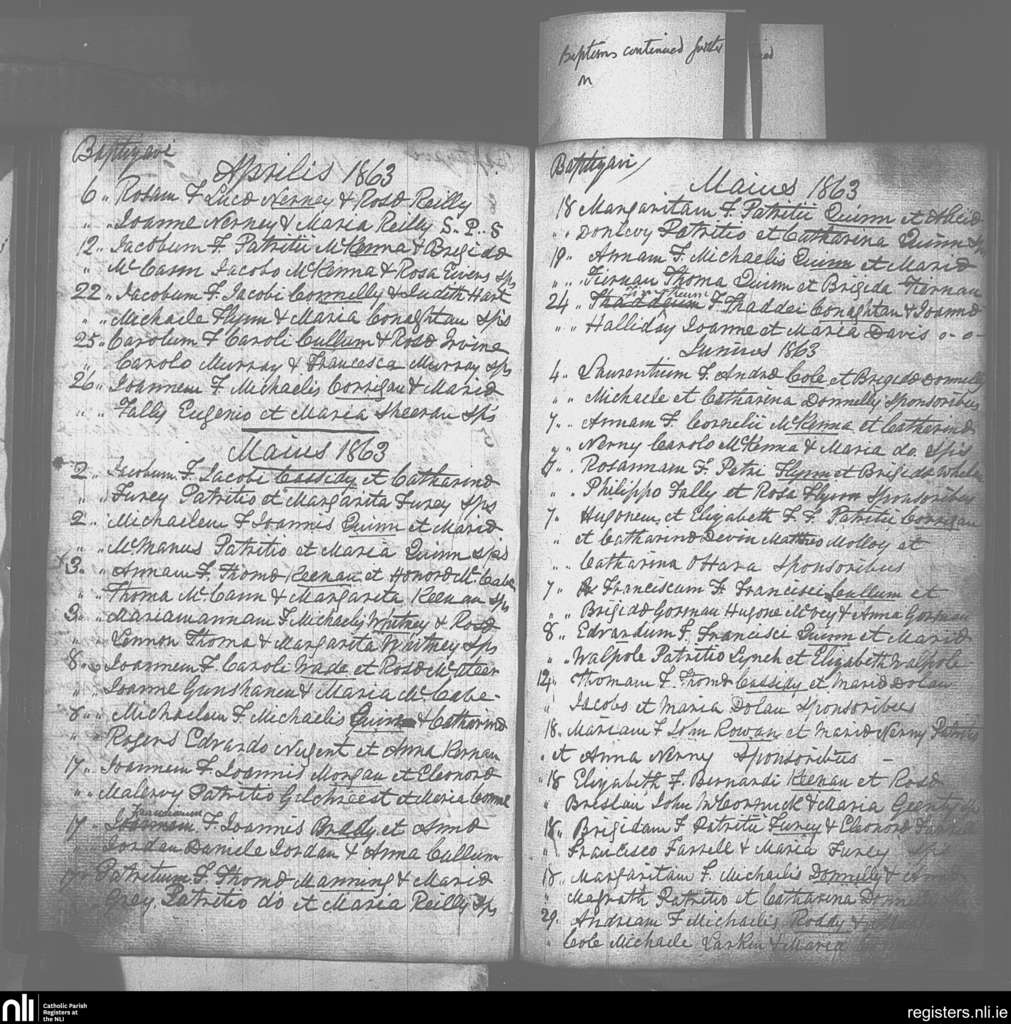 Baptisms continued further
on
Baptizavi
Aprilis 1863
6 " Rosam F Lucæ Nerney & Rosæ Reilly
" Joanne Nerney & Maria Reilly S. P. S
12 " Jacobum F. Patritii McKenna & Brigidæ
" McCann Jacobo McKenna & Rosa Sps
22 " Jacobum F. Jacobi Connelly & Judith Hart
" Michaele Flynn & Maria Conaghtan Sps
25 " Carolum F Caroli Cullum & Rosæ Irvine
" Carolo Murray & Francesca Murray Sps
26 " Joannem F. Michaelis Corrigan & Mariæ
" " Fally Eugenio et Maria Sheeran Sps
Maius 1863
2 " Jacobum F. Jacobi Cassidy et Catharinæ
" Furey Patritio et Margarita Furey Sps
2 " Michaelem F Joannis Quinn et Mariæ
" McManus Patritio et Maria Quinn Sps
3 " Annam F. Thomæ Keenan et Honoræ McCabe
" Thoma McCann & Margarita Keenan Sps
3 " Mariamannam F. Michaelis Whitney & Rosæ
" Lennon Thoma & Margarita Whitney Sps
8 " Joannem F. Caroli Wade et Rosæ McAteer
" Joanne Gunshanen & Maria McCabe -
8 " Michaelem F Michaelis Quinn & Catharinæ
" Rogers Edvardo Nugent et Anna Kernan
17 " Joannem F. Joannis Morgan et Eleonoræ
" Maleroy Patritio Gilchriest et Maria
17 " F. Joannis Brady et Annæ
" Jordan Daniele Jordan & Anna Cullum
17 " Patritium F Thomæ Manning & Mariæ
Grey Patritio do et Maria Reilly Sps
Baptizavi
Maius 1863
18 Margaritam F. Patritii Quinn et
" " Donlevy Patritio et Catharina Quinn Sps
19 " Annam F. Michaelis Quinn et Mariæ
" " Tiernan Thoma Quinn et Brigida Tiernan
24 " F. Thaddei Conaghtan & Joannæ
" " Halliday Joanne et Maria Davis o - o -
Junius 1863
4 " Laurentium F. Andræ Cole et Brigidæ Donnelly
" " Michaele et Catharina Donnelly Sponsoribus
7 " Annam F. Cornelii McKenna et Catharinæ
" " Nerny Carolo McKenna & Maria do. Sps
" Rosannam F. Petri Flynn et Brigidæ
" Philippo Fally et Rosa Flynn Sponsoribus
7 " Hugonem et Elizabeth F. F. Patritii Corrigan
" et Catharinæ Devin Matthæo Molloy et
" Catharina O'Hara Sponsoribus
7 " Franciscum F. Francisci Scullum et
" Brigidæ Gorman Hugone McVey & Anna Gorman
8 " Edvardum F. Francisci Quinn et Mariæ
" " Walpole Patritio Lynch et Elizabeth Walpole
12 " Thomam F. Thomæ Cassidy et Mariæ Dolan
" Jacobo et Maria Dolan Sponsoribus
18 " Mariam F. John Rowan et Mariæ Nerny Patritio
" et Anna Nerny Sponsoribus -
18 Elizabeth F. Bernardi Keenan et Rosæ
" Breslan John McCormick & Maria Geenty Sps
18 " Brigidam F. Patritii Furey & Eleonoræ Farrell
" Francisco Farrell & Maria Furey Sps
18 " Margaritam F. Michaelis Donnelly &
" Magrath Patritio et Catharina Donnelly
29 " Andream F Michaelis Roddy &
" Cole Michaele Larkin & Maria
nli
Catholic Parish
Registers at
the NLI
registers.nli.ie